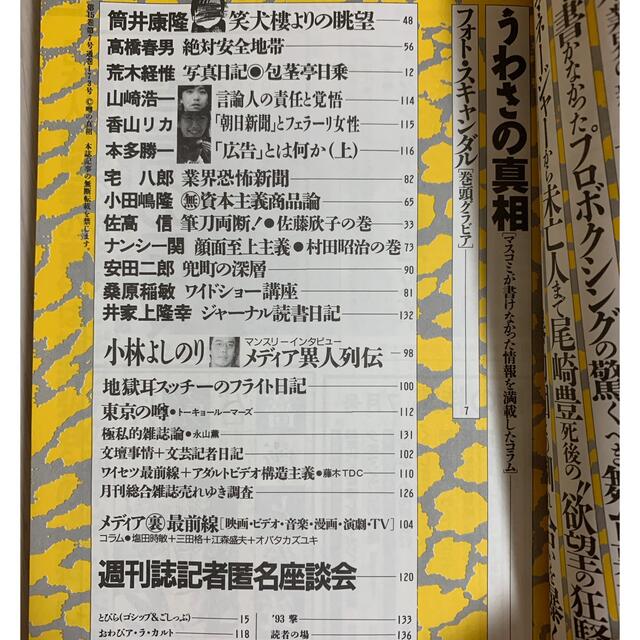 書かなかったプロボクシングの驚くべき
マネージャーから未亡人まで尾崎豊死後の!!欲望の狂騒
うわさの真相[マスコミが書けなかった情報を満載したコラム]
フォト・スキャンダル[巻頭グラビア] 7
筒井康隆 笑犬樓よりの眺望 48
高橋春男 絶対安全地帯 56
荒木経惟 写真日記◉包茎亭日乗 12
山崎浩一 言論人の責任と覚悟 114
香山リカ 「朝日新聞」とフェラーリ女性 115
本多勝一 「広告」とは何か(上) 116
宅 八郎 業界恐怖新聞 82
小田嶋隆 ㊒資本主義商品論 65
佐高 信 筆刀両断!●佐藤欣子の巻 33
ナンシー関 顔面至上主義●村田昭治の巻 73
安田二郎 兜町の深層 90
桑原稲敏 ワイドショー講座 81
井家上隆幸 ジャーナル読書日記 132
小林よしのり マンスリーインタビュー
メディア異人列伝 98
地獄耳スッチーのフライト日記 100
東京の噂●トーキョールーマーズ 112
極私的雑誌論●永山薫 131
文壇事情+文芸記者日記 102
ワイセツ最前線+アダルトビデオ構造主義●藤木TDC 110
月刊総合雑誌売れゆき調査 126
メディア裏最前線[映画・ビデオ・音楽・漫画・演劇・TV] 104
コラム●塩田時敏+三田格+江森盛夫+オバタカズユキ
週刊誌記者匿名座談会 120
とびら(ゴシップ&ごしっぷ) 15
おわびア・ラ・カルト 118
'93 撃 133
読者の場 136
第15巻第7号通巻173号 ©噂の真相 本誌記事の無断転載を禁じます。